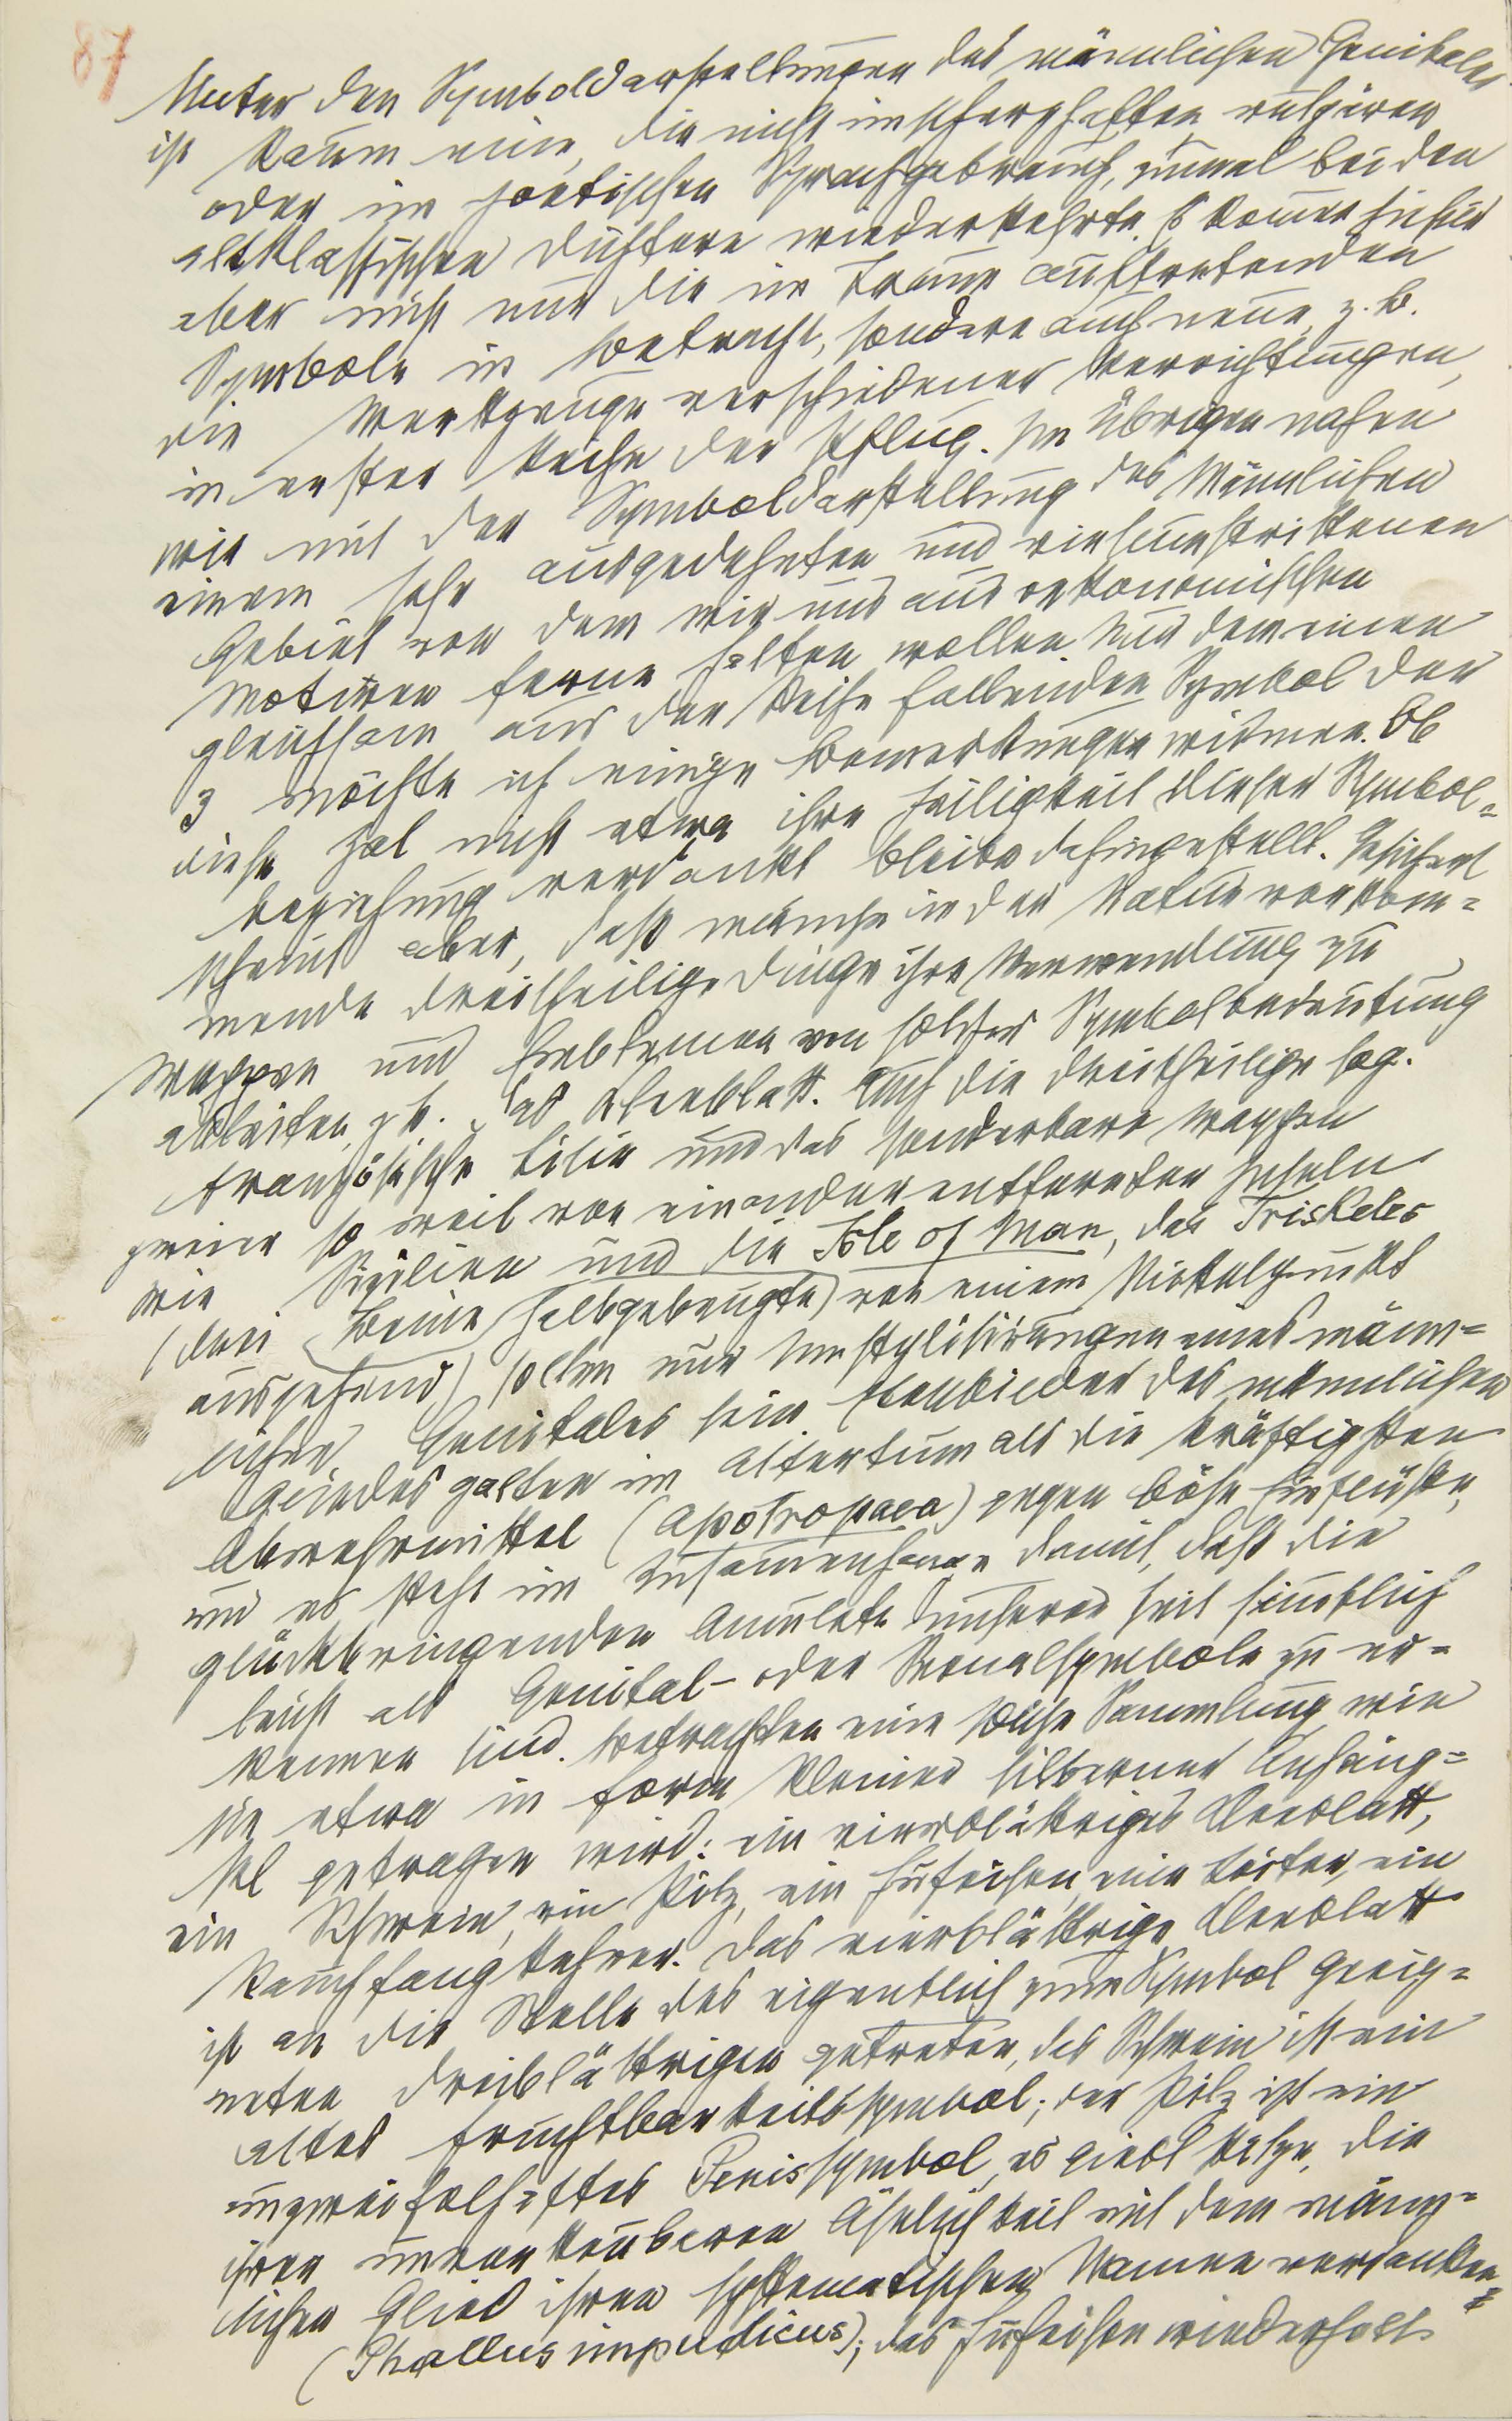 87
Unter den Symboldarstellungen des männlichen Genitales
ist kaum eine, die nicht im scherzhaften, vulgären
oder im poetischen Sprachgebrauch, zumal bei den
altklassischen Dichtern wiederkehrte. Es kommen hiefür
aber nicht nur die im Traum auftretenden
Symbole in Betracht, sondern auch neue, z. B.
die Werkzeuge verschiedener Verrichtungen,
in erster Reihe der Pflug. Im Übrigen nahen
wir mit der Symboldarstellung des Männlichen
einem sehr ausgedehnten und vielumstrittenen
Gebiet von dem wir uns aus oekonomischen
Motiven ferne halten wollen. Nur dem einen
gleichsam aus der Reihe fallenden Symbol der
3 möchte ich einige Bemerkungen widmen. Ob
diese Zal nicht etwa ihre Heiligkeit dieser Symbol=
beziehung verdankt bleibe dahingestellt. Gesichert
scheint aber, daß manche in der Natur vorkom=
mende dreitheilige Dinge ihre Verwendung zu
Wappen und Emblemen von solcher Symbolbedeutung
ableiten, z b. das Kleeblatt. Auch die dreitheilige sog.
französische Lilie und das sonderbare Wappen
zweier so weit von einander entfernten Inseln
wie Sizilien und die Isle of Man, das Triskeles
(drei Beine halbgebeugte von einem Mittelpunkt
ausgehend) sollen nur Umstylisirungen eines männ=
lichen Genitales sein. Ebenbilder des männlichen
Gliedes galten im Altertum als die kräftigsten
Abwehrmittel (Apotropaea) gegen böse Einflüsse,
und es steht im Zusammenhange damit, daß die
glückbringenden Amulete unserer Zeit sämtlich
leicht als Genital- oder Sexualsymbole zu er=
kennen sind. Betrachten eine solche Sammlung wie
sie etwa in Form kleiner silberner Anhäng=
sel getragen wird: ein vierblättriges Kleeblatt,
ein Schwein, ein Pilz, ein Hufeisen, eine Leiter, ein
Rauchfangkehrer. Das vierblättrige Kleeblatt
ist an die Stelle des eigentlich zum Symbol geeig=
neten dreiblättrigen getreten, das Schwein ist ein
altes Fruchtbarkeitssymbol; der Pilz ist ein
unzweifelhaftes Penissymbol, es giebt Pilze, die
ihrer unverkennbaren Ähnlichkeit mit dem männ=
lichen Glied ihren systematischen Namen verdanken
(Phallus impudicus); das Hufeisen wiederholt